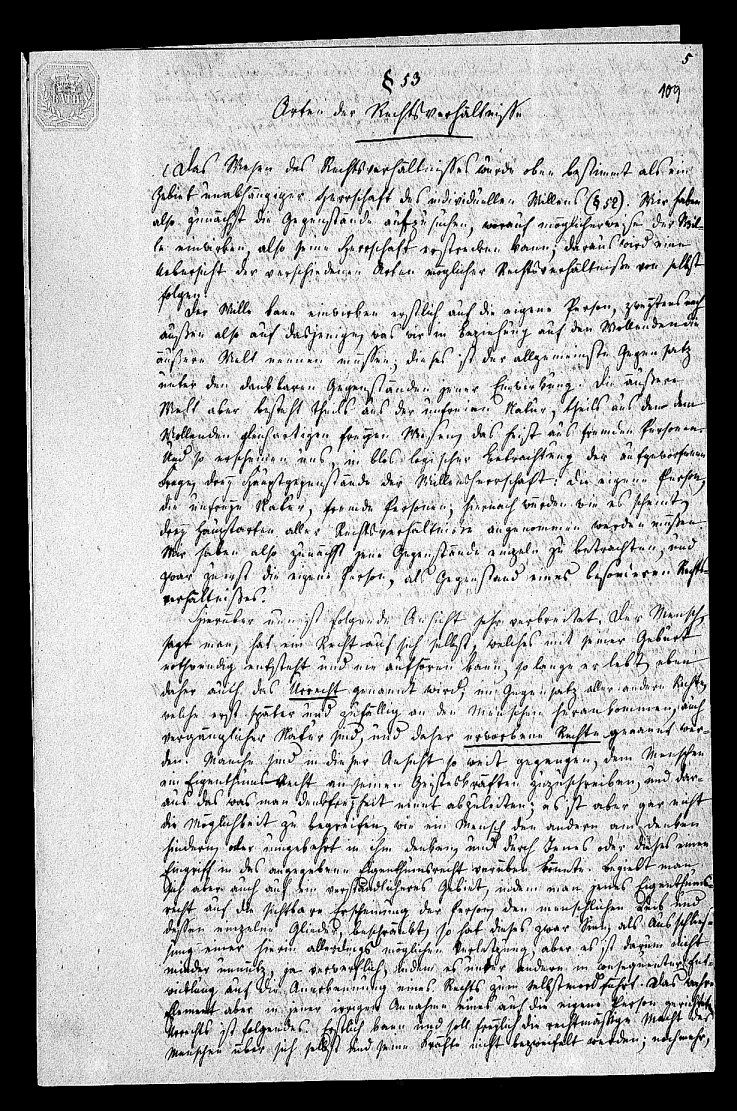 5
§ 53
109
Arten der Rechtsverhältnisse
Das Wesen des Rechtsverhältnisses wurde oben bestimmt als ein
Gebiet unabhängiger Herrschaft des individuellen Willens (§ 52). Wir haben
also zunächst die Gegenstände aufzusuchen, worauf möglicherweise der Wil-
le einwirken, also seine Herrschaft erstrecken kann; daraus wird eine
Uebersicht der verschiedenen Arten möglicher Rechtsverhältnisse von selbst
folgen.
Der Wille kann einwirken erstlich auf die eigene Person, zweytens nach
außen also auf dasjenige, was wir in Beziehung auf den Wollenden die
äußere Welt nennen müssen; dieses ist der allgemeinste Gegensatz
unter den denkbaren Gegenständen jener Einwirkung. Die äußere
Welt aber besteht theils aus der unfreyen Natur, theils aus den dem
Wollenden gleichartigen freyen Wesen, das heißt aus fremden Personen.
Und so erscheinen uns, in blos logischer Betrachtung der aufgeworfenen
Frage, drey Hauptgegenstände der Willensherrschaft: die eigene Person,
die unfreye Natur, fremde Personen; hiernach würden wie es scheint,
drey Hauptarten aller Rechtsverhältnisse angenommen werden müssen.
Wir haben also zunächst jene Gegenstände einzeln zu betrachten, und
zwar zuerst die eigene Person, als Gegenstand eines besonderen Rechts-
verhältnißes.
Hierüber nun ist folgende Ansicht sehr verbreitet. Der Mensch,
sagt man, hat ein Recht auf sich selbst, welches mit seiner Geburt
nothwendig entsteht und nie aufhören kann, so lange er lebt, eben
daher auch das Urrecht genannt wird; im Gegensatz aller andern Rechte,
welche erst später und zufällig an den Menschen herankommen, auch
vergänglicher Natur sind, und daher erworbene Rechte genannt wer-
den. Manche sind in dieser Ansicht so weit gegangen, dem Menschen
ein Eigenthumsrecht an seinen Geisteskräften zuzuschreiben, und dar-
aus das was man Denkfreyheit nennt abzuleiten; es ist aber gar nicht
die Möglichkeit zu begreifen, wie ein Mensch den andern am Denken
hindern, oder umgekehrt in ihm denken, und durch Jenes oder Dieses einen
Eingriff in das angegebene Eigenthumsrecht verüben könnte. Begiebt man
sich aber auch auf ein verständlicheres Gebiet, indem man jenes Eigenthums-
recht auf die sichtbare Erscheinung der Person, den menschlichen Leib und
dessen einzelne Glieder, beschränkt, so hat dieses zwar Sinn, als Ausschlies-
sung einer hierin allerdings möglichen Verletzung, aber es ist darum nicht
minder unnütz, ja verwerflich, indem es unter andern in consequenter Ent-
wicklung auf die Anerkennung eines Rechts zum Selbstmord führt. Das wahre
Element aber in jener irrigen Annahme eines auf die eigene Person gerichteten
Urrechts ist folgendes. Erstlich kann und soll freylich die rechtmäßige Macht des
Menschen über sich selbst und seine Kräfte nicht bezweifelt werden; noch mehr,